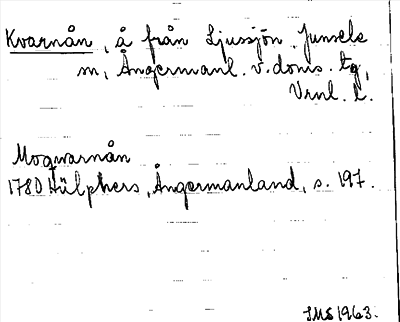 Kvarnån, å från Ljussjön. Junsele
m, Ångermanl. v. doms. tg,
Vrnl. l.
Moqvarnån
1780 Hülphers, Ångermanland, s. 197.
IMS 1963.